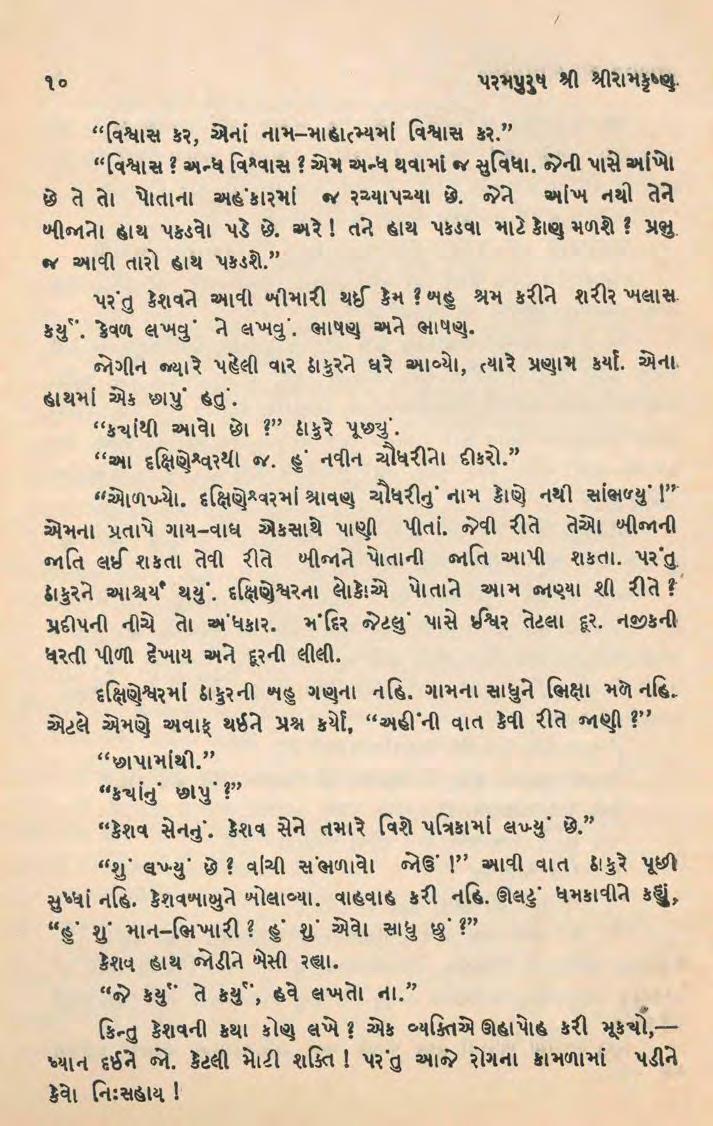 ૧૦ પરમપુરુષ શ્રી શ્રીરામકૃષ્ણ.
“વિશ્વાસ કર, એનાં નામ–માહાત્મ્યમાં વિશ્વાસ કર.”
“વિશ્વાસ ? અન્ધ વિશ્વાસ ? એમ અન્ધ થવામાં જ સુવિધા. જેની પાસે આંખો
છે તે તો પોતાના અહંકારમાં જ રચ્યાપચ્યા છે. જેને આંખ નથી તેને
બીજાનો હાથ પકડવો પડે છે. અરે ! તને હાથ પકડવા માટે કોણ મળશે ? પ્રભુ
જ આવી તારો હાથ પકડશે.”
પરંતુ કેશવને આવી બીમારી થઈ કેમ ? બહુ શ્રમ કરીને શરીર ખલાસ
કર્યું. કેવળ લખવું ને લખવું. ભાષણ અને ભાષણ.
જોગીન જ્યારે પહેલી વાર ઠાકુરને ઘરે આવ્યો, ત્યારે પ્રણામ કર્યાં. એના
હાથમાં એક છાપું હતું.
“કયાંથી આવો છો ?” ઠાકુરે પૂછ્યું.
“આ દક્ષિણેશ્વરથી જ. હું નવીન ચૌધરીનો દીકરો.”
“ઓળખ્યો. દક્ષિણેશ્વરમાં શ્રાવણ ચૌધરીનું નામ કોણે નથી સાંભળ્યું !”
એમના પ્રતાપે ગાય–વાઘ એકસાથે પાણી પીતાં. જેવી રીતે તેઓ બીજાની
જાતિ લઈ શકતા તેવી રીતે બીજાને પોતાની જાતિ આપી શકતા. પરંતુ
ઠાકુરને આશ્ચર્ય થયું. દક્ષિણેશ્વરના લોકોએ પોતાને આમ જાણ્યા શી રીતે ?
પ્રદીપની નીચે તો અંધકાર. મંદિર જેટલું પાસે ઈશ્વર તેટલા દૂર. નજીકની
ધરતી પીળી દેખાય અને દૂરની લીલી.
દક્ષિણેશ્વરમાં ઠાકુરની બહુ ગણના નહિ. ગામના સાધુને ભિક્ષા મળે નહિ.
એટલે એમણે અવાક્ થઈને પ્રશ્ન કર્યો, “અહીંની વાત કેવી રીતે જાણી ?”
“છાપામાંથી.”
“કયાંનું છાપું ?”
“કેશવ સેનનું. કેશવ સેને તમારે વિશે પત્રિકામાં લખ્યું છે.”
“શું લખ્યું છે ? વાંચી સંભળાવો જોઉં !” આવી વાત ઠાકુરે પૂછી
સુધ્ધાં નહિ. કેશવબાબુને બોલાવ્યા. વાહવાહ કરી નહિ. ઊલટું ધમકાવીને કહ્યું,
“હું શું માન–ભિખારી ? હું શું એવો સાધુ છું ?”
કેશવ હાથ જોડીને બેસી રહ્યા.
“જે કર્યું તે કર્યું, હવે લખતો ના.”
કિન્તુ કેશવની કથા કોણ લખે ? એક વ્યક્તિએ ઊહાપોહ કરી મૂકયો,—
ધ્યાન દઈને જો. કેટલી મોટી શક્તિ ! પરંતુ આજે રોગના કામળામાં પડીને
કેવો નિઃસહાય !